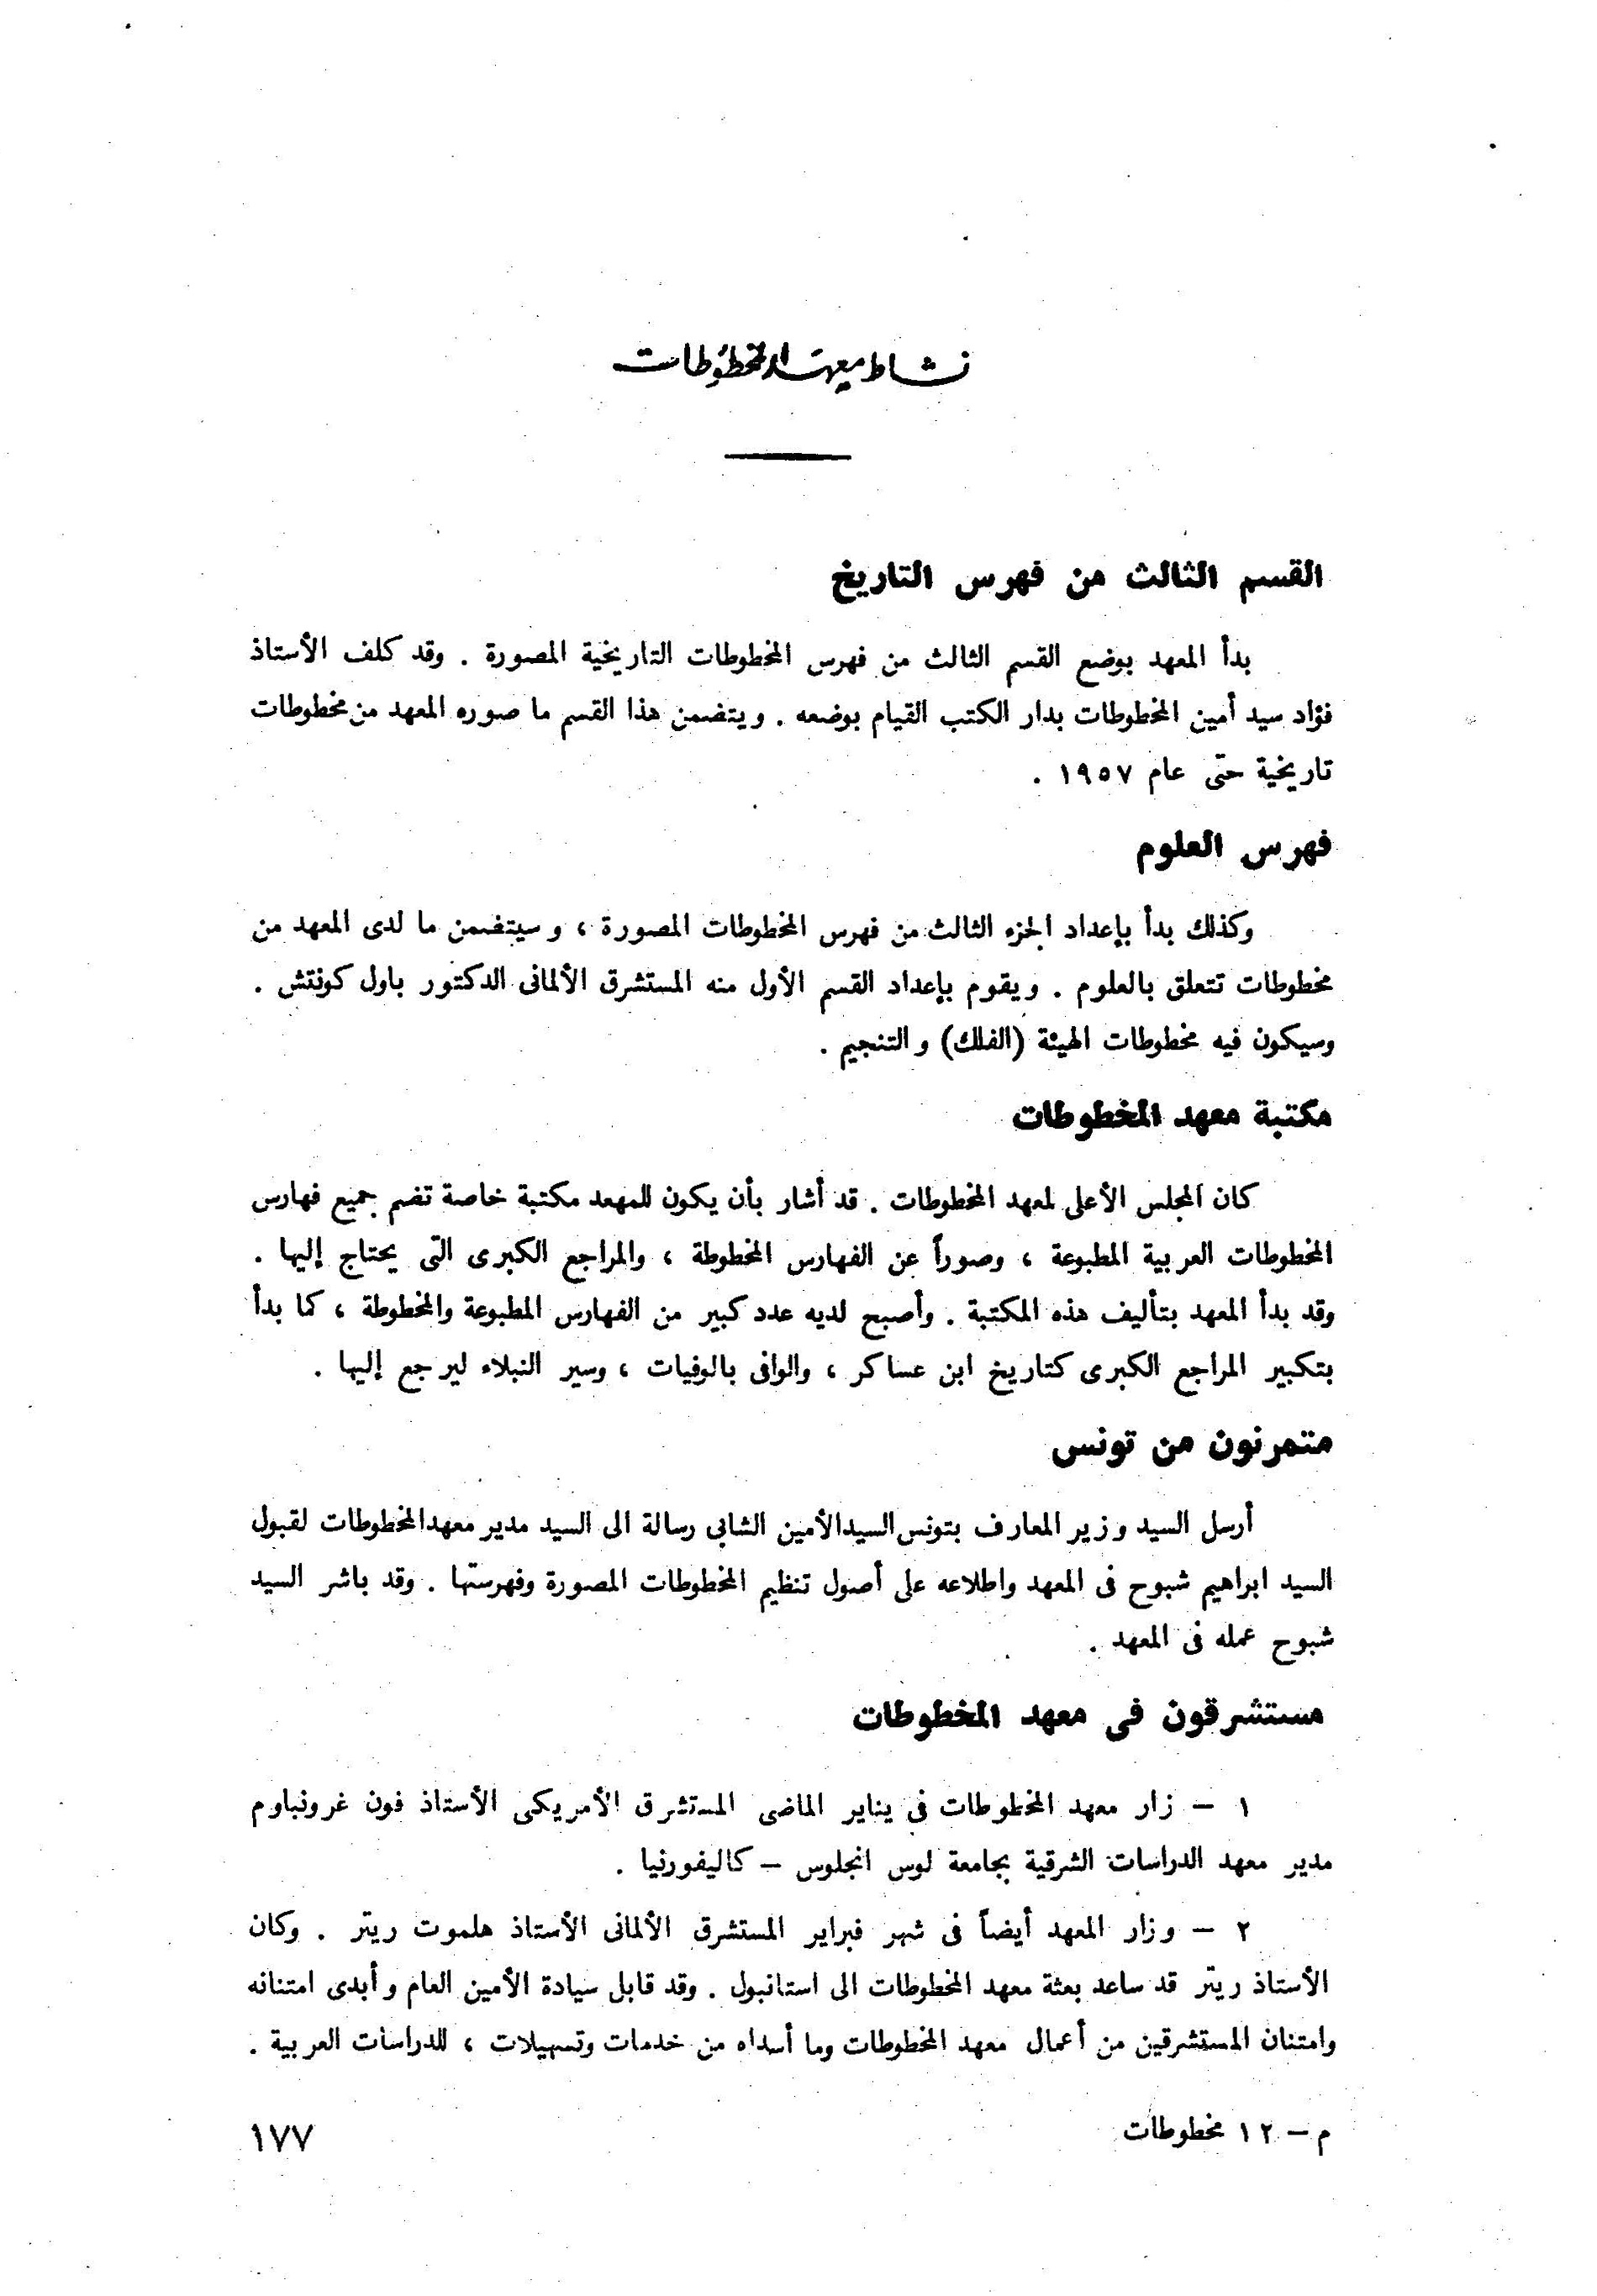 نشاط معهد المخطوطات
القسم الثالث من فهرس التاريخ
بدأ المعهد بوضع القسم الثالث من فهرس المخطوطات التاريخية المصورة . وقد كلف الأستاذ
فؤاد سيد أمين المخطوطات بدار الكتب القيام بوضعه . ويتضمن هذا القسم ما صوره المعهد من مخطوطات
تاريخية حتى عام ١٩٥٧ .
فهرس العلوم
وكذلك بدأ بإعداد الجزء الثالث من فهرس المخطوطات المصورة ، وسيتضمن ما لدى المعهد من
مخطوطات تتعلق بالعلوم . ويقوم بإعداد القسم الأول منه المستشرق الألمانى الدكتور باول كونتش .
وسيكون فيه مخطوطات الهيئة (الفلك) والتنجيم .
مكتبة معهد المخطوطات
كان المجلس الأعلى لمعهد المخطوطات . قد أشار بأن يكون للمهعد مكتبة خاصة تضم جميع فهارس
المخطوطات العربية المطبوعة ، وصوراً عن الفهارس المخطوطة ، والمراجع الكبرى التى يحتاج إليها .
وقد بدأ المعهد بتأليف هذه المكتبة . وأصبح لديه عدد كبير من الفهارس المطبوعة والمخطوطة ، كما بدأ
بتكبير المراجع الكبرى كتاريخ ابن عساكر ، والوافى بالوفيات ، وسير النبلاء ليرجع إليها .
متمرنون من تونس
أرسل السيد وزير المعارف بتونس السيد الأمين الشابى رسالة الى السيد مدير معهد المخطوطات لقبول
السيد ابراهيم شبوح فى المعهد واطلاعه على أصول تنظيم المخطوطات المصورة وفهرستها . وقد باشر السيد
شبوح عمله فى المعهد .
مستشرقون فى معهد المخطوطات
١ – زار معهد المخطوطات فى يناير الماضى المستشرق الأمريكى الأستاذ فون غرونباوم
مدير معهد الدراسات الشرقية بجامعة لوس انجلوس – كاليفورنيا .
٢ – وزار المعهد أيضاً فى شهر فبراير المستشرق الألمانى الأستاذ هلموت ريتر . وكان
الأستاذ ريتر قد ساعد بعثة معهد المخطوطات الى استانبول . وقد قابل سيادة الأمين العام وأبدى امتنانه
وامتنان المستشرقين من أعمال معهد المخطوطات وما أسداه من خدمات وتسهيلات ، للدراسات العربية .
م – ١٢ مخطوطات
١٧٧